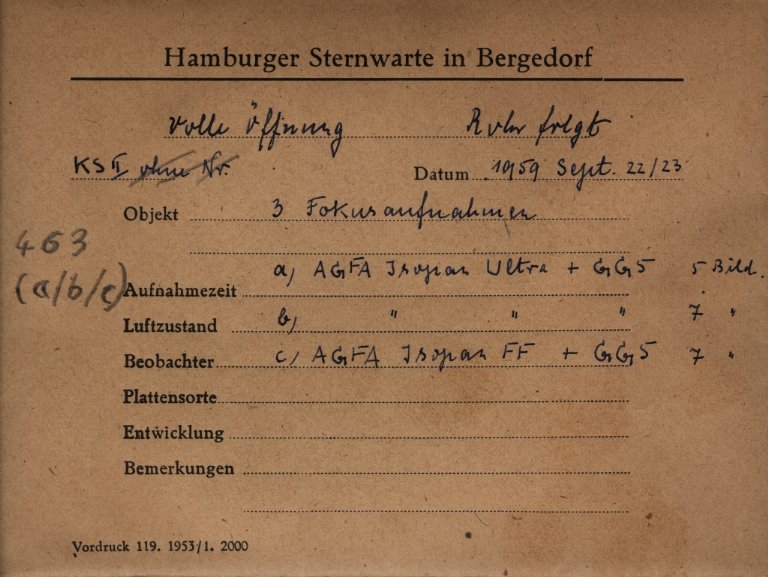 Hamburger Sternwarte in Bergedorf
Volle Öffnung Rohr folgt
KS II ohne Nr. Datum 1959 Sept. 22/23
Objekt 3 Fokusaufnahmen
463
a) AGFA Isopan Ultra + GG5 5 Bild.
(a/b/c) Aufnahmezeit
Luftzustand b) " " " 7 "
Beobachter c) AGFA Isopan FF + GG5 7 "
Plattensorte
Entwicklung
Bemerkungen
Vordruck 119. 1953/1. 2000